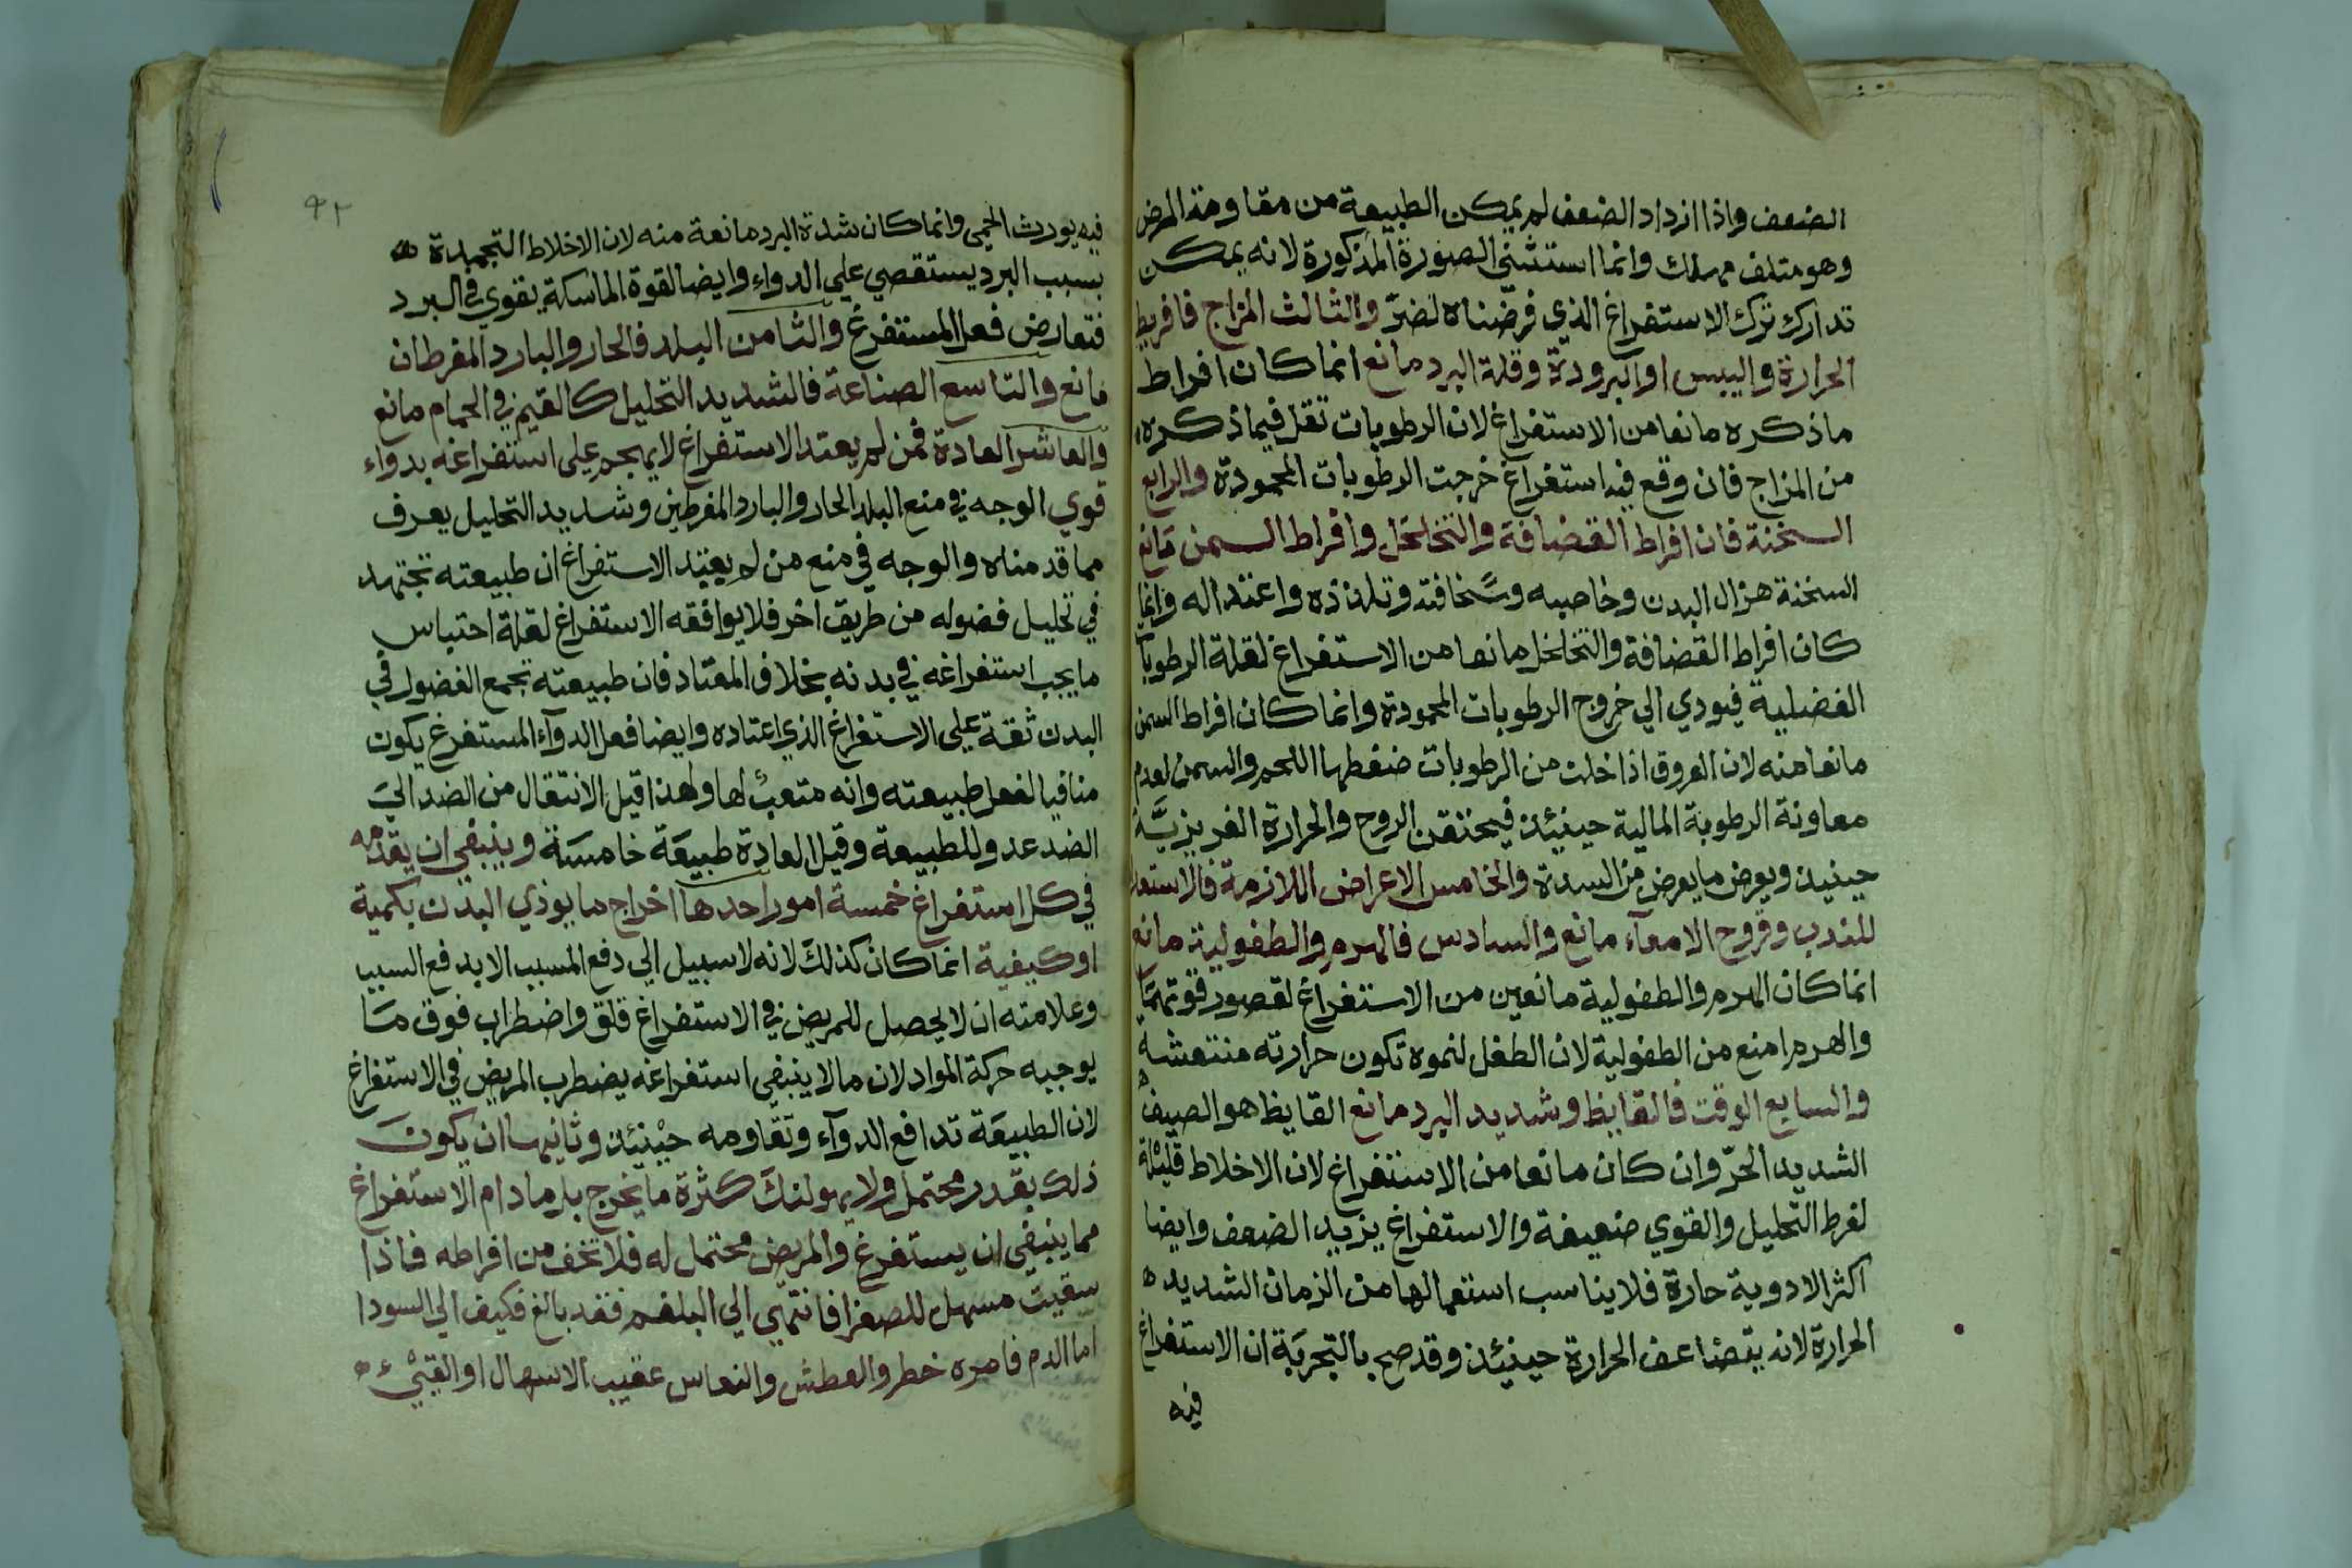 الضعف واذا ازداد الضعف لم يمكن الطبيعة من مقاومة المرض
وهو متلف مهلك وانما استثنى الصورة المذكورة لانه يمكن
تدارك ترك الاستفراغ الذي فرضناه لضرّ والثالث المزاج فافريط
الحرارة واليبس او البرودة وقلة البرد مانع انما كان افراط
ماذكره مانعا من الاستفراغ لان الرطوبات تقل فيما ذكره
من المزاج فان وقع فيه استفراغ خرجت الرطوبات المحمودة والرابع
السخنة فان افراط القضافة والتخلخل وافراط السمن مانع
السخنة هزال البدن وخاصبه وسخافته وتلذذه واعتداله وانما
كان افراط القضافة والتخلخل مانعا من الاستفراغ لقلة الرطوبات
الفضلية فيودي الي خروج الرطوبات المحمودة وانما كان افراط السمن
مانعا منه لان العروق اذا خلت من الرطوبات ضغطها اللحم والسمن لعدم
معاونة الرطوبة المالية حينئذ فيختنقن الروح والحرارة الغريزيَّة
حينئذ ويعرض ما يعرض من السدة والخامس الاعراض اللازمة فالاستعداد
للذرب وقروح الامعآء مانع والسادس فالهرم والطفولية مانع
انما كان الهرم والطفولية مانعين من الاستفراغ لقصور قوتهما
والهرم امنع من الطفولية لان الطفل لنموه تكون حرارته منتعشة
والسابع الوقت فالقايظ وشديد البرد مانع القايظ هو الصيف
الشديد الحرّ وان كان مانعا من الاستفراغ لان الاخلاط قليلة
لفرط التحليل والقوي ضعيفة والاستفراغ يزيد الضعف وايضا
اكثر الادوية حارة فلا يناسب استعمالها من الزمان الشديد
الحرارة لانه يتضاعف الحرارة حينئذ وقد صح بالتجربة ان الاستفراغ
فيه
٩٢
فيه يورث الحمى وانما كان شدة البرد مانعة منه لان الاخلاط التجميدة
بسبب البرد يستقصي علي الدواء وايضا القوة الماسكة يقوي في البرد
فتعارض فعل المستفرغ والثامن البلد فالحار والبارد المفرطان
مانع والتاسع الصناعة فالشديد التحليل كالقيم في الحمام مانع
والعاشر العادة فمن لم يعتد الاستفراغ لا يهجم على استفراغه بدواء
قوي الوجه في منع البلد الحار والبارد المفرطين وشديد التحليل يعرف
مما قدمناه والوجه في منع من لم يعتد الاستفراغ ان طبيعته تجتهد
في تحليل فضوله من طريق اخر فلا يوافقه الاستفراغ لقلة احتباس
ما يجب استفراغه في بدنه بخلاف المعتاد فان طبيعته تجمع الفضول في
البدن ثقة علي الاستفراغ الذي اعتاده وايضا فعل الدوآء المستفرغ يكون
منافيا لفعل طبيعته وانه متعب لها ولهذا قيل الانتقال من الضد الي
الضد عدو للطبيعة وقيل العادة طبيعة خامسة وينبغي ان يقدمه
في كل استفراغ خمسة امور احدها اخراج ما يوذي البدن بكمية
او كيفية انما كان كذلك لانه لا سبيل الي دفع المسبب الا بدفع السبب
وعلامته ان لا يحصل للمريض في الاستفراغ قلق واضطراب فوق ما
يوجبه حركة المواد لان ما لا ينبغي استفراغه يضطرب المريض في الاستفراغ
لان الطبيعة تدافع الدوآء وتقاومه حينئذ وثانيها ان يكون
ذلك بقدر محتمل ولا يهولنك كثرة ما يخرج بل مادام الاستفراغ
مما ينبغي ان يستفرغ والمريض محتمل له فلا تخف من افراطه فاذا
سقيت مسهل للصفرا فانتهي الي البلغم فقد بالغ فكيف الي السودا
اما الدم فامره خطر والعطش والنعاس عقيب الاسهال او القيء